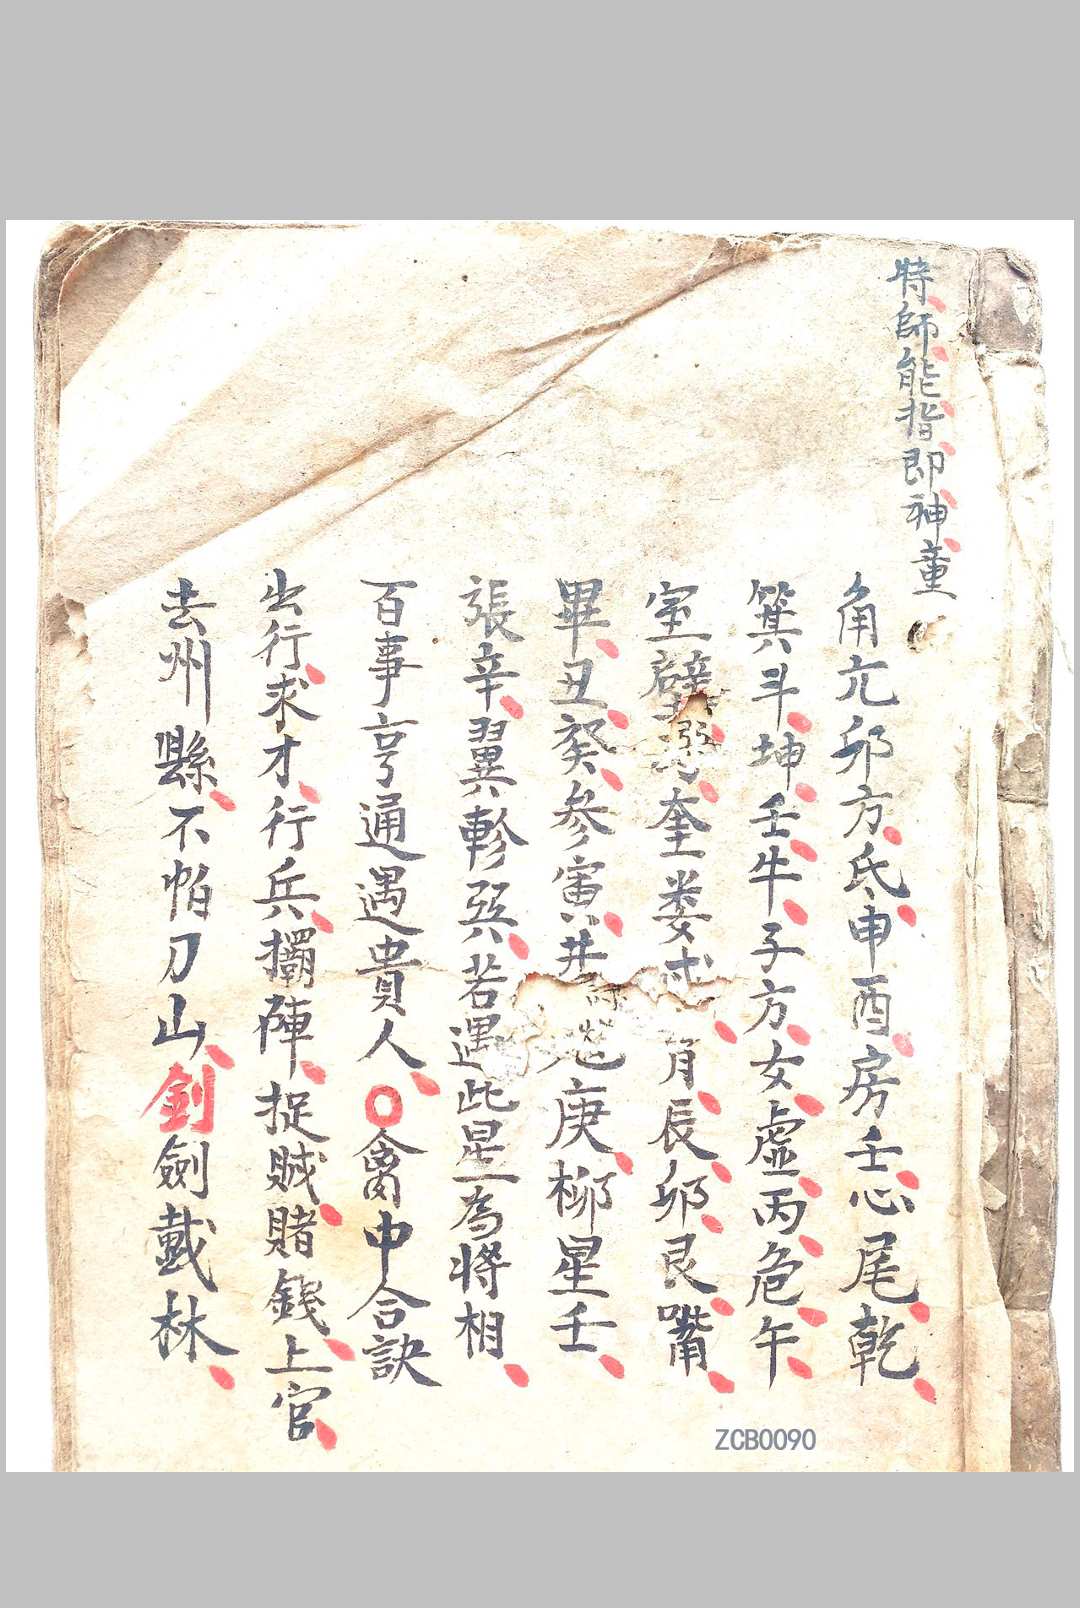 特師能指即神童
角亢卯方氐申酉房壬心尾乾
箕斗坤壬牛子方女虛丙危午
室壁奎娄戌 辰卯艮嘴
畢丑癸參寅井 庚柳星壬
張辛翼軫巽若遇此星為將相
百事亨通遇貴人〇禽中合訣
出行求才行兵擺陣捉賊賭錢上官
去州縣不怕刀山劍劍戴林
ZCB0090